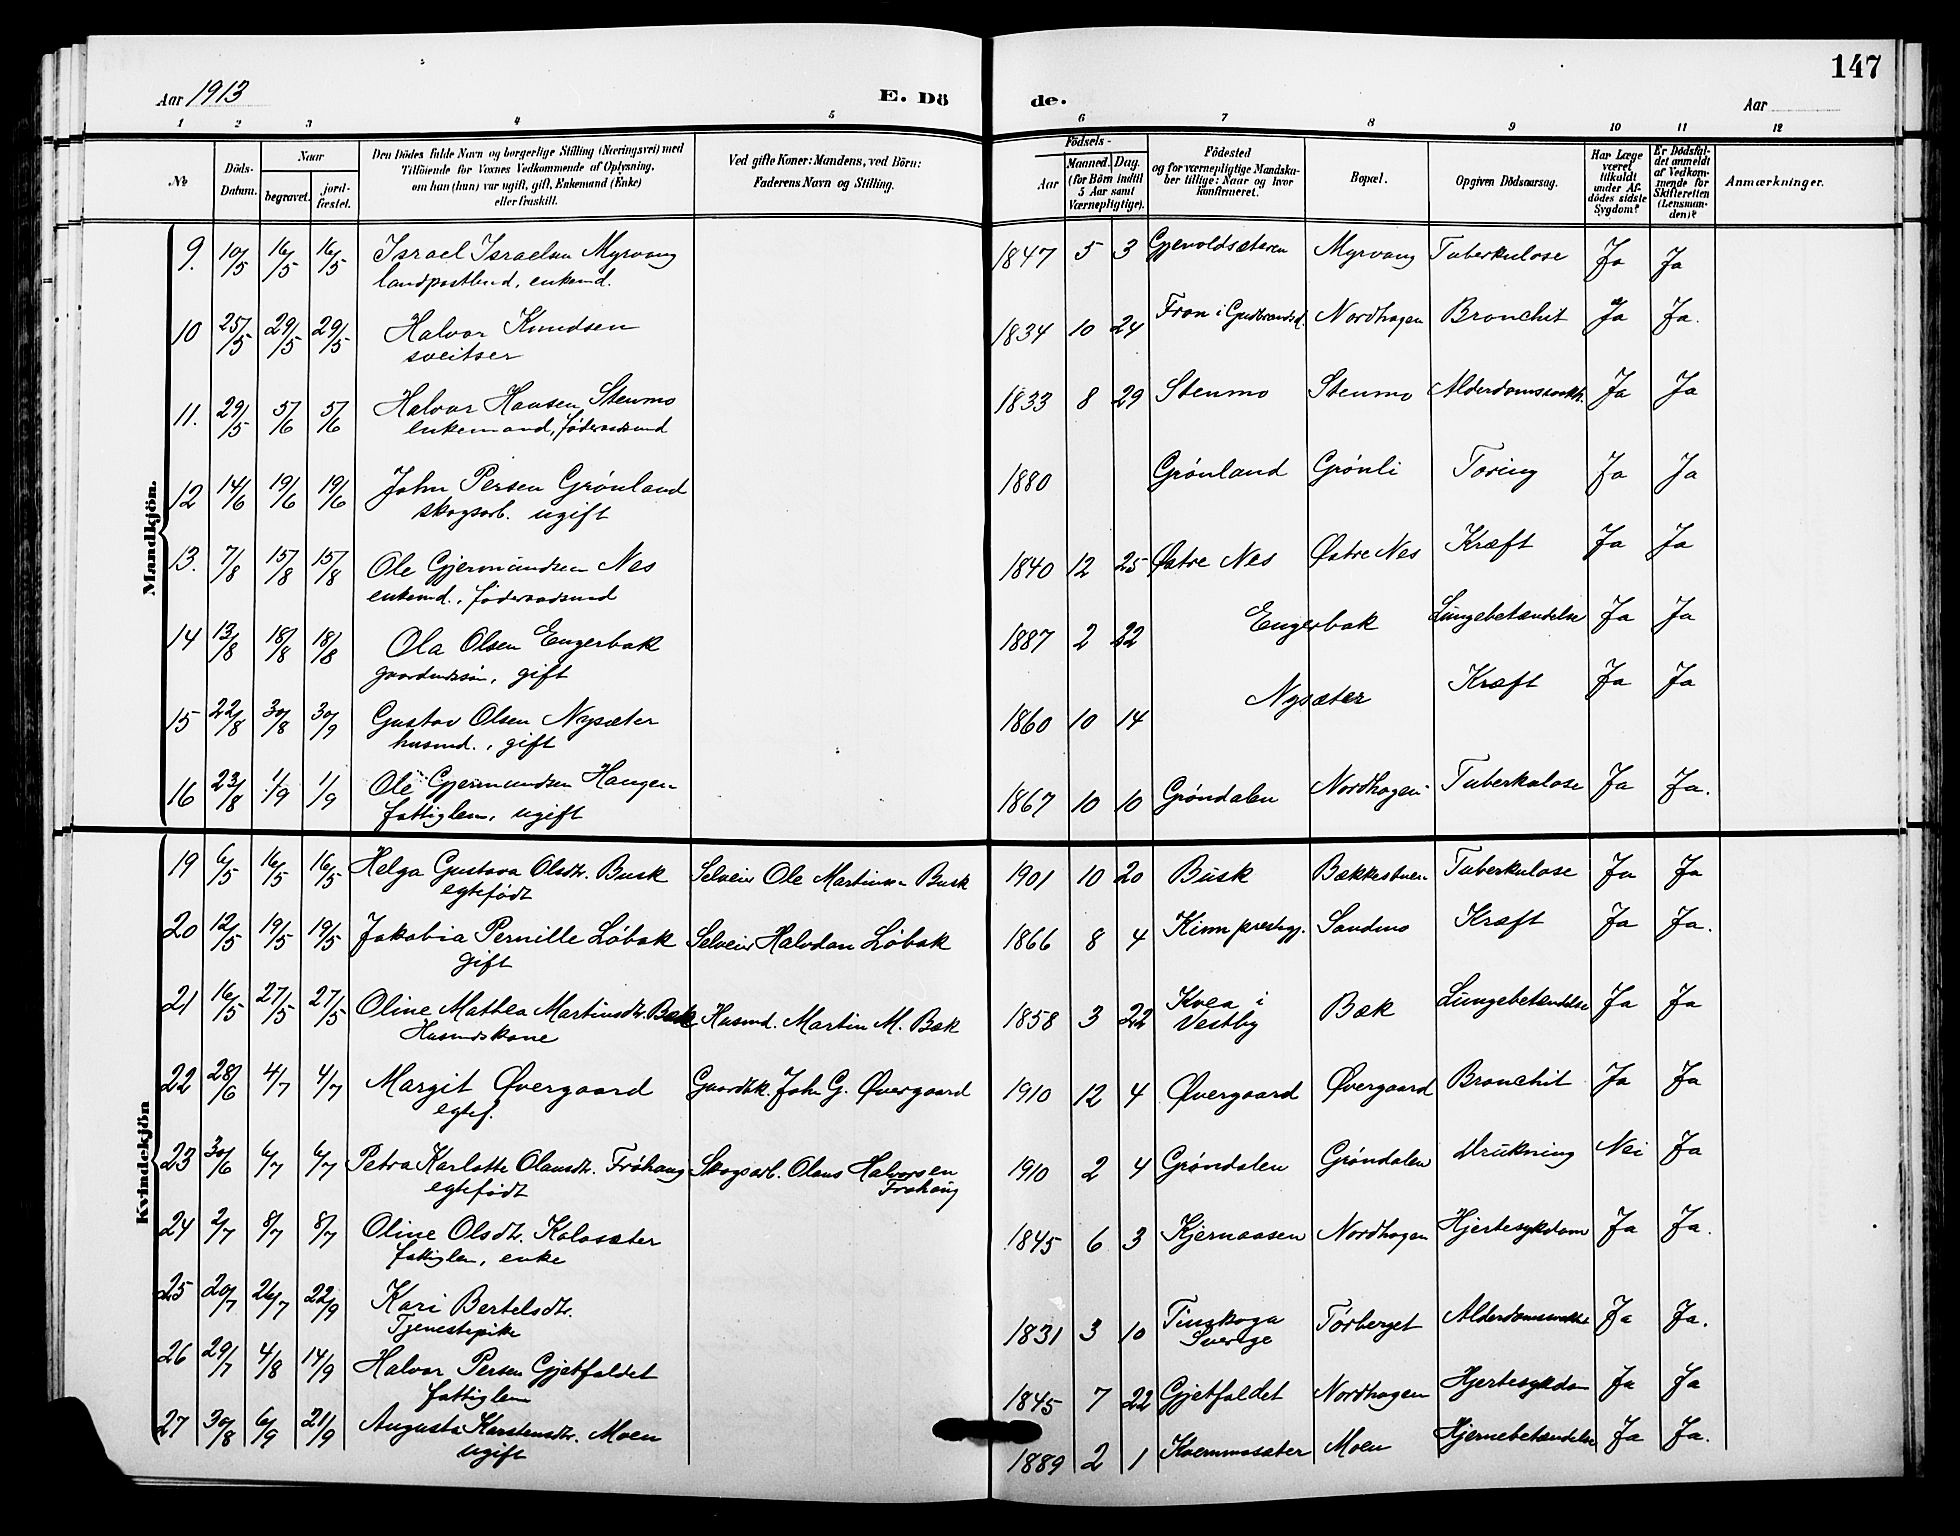 147
Aar 1913
E. Dö
de.
Aar
1 2 3 4 5 6 7 8 9 10 11 12
No
Döds-Datum.
Naar
begravet.
jord-fæstet.
Den Dödes fulde Navn og borgerlige Stilling (Næringsvei) med
Tilföiende for Voxnes Vedkommende af Oplysning,
om han (hun) var ugift, gift, Enkemand (Enke)
eller fraskilt.
Ved gifte Koner: Mandens, ved Börn:
Faderens Navn og Stilling.
Födsels-
Aar
Maaned. Dag.
(for Börn indtil
5 Aar samt
Værnepligtige).
Födested
og for værnepligtige Mandska-
ber tillige: Naar og hvor
konfirmeret.
Bopæl.
Opgiven Dödsaarsag.
Har Læge
været
tilkaldt
under Af-
dödes sidste
Sygdom?
Er Dödsfal-
det anmeldt
af Vedkom-
mende for
Skifteretten
(Lensman-
den)?
Anmærkninger.
Mandkjön.
9. 10/5 16/5 16/5 Israel Israelsen Myrvang 1847 5 3 Gjenvoldsæteren Myrvang Tuberkulose Ja Ja
landpostbud, enkemd.
10 25/5 29/5 29/5 Halvor Knudsen 1834 10 24 Fron i Gudbrandsd. Nordhagen Bronchit Ja Ja.
sveitser
11. 29/5 5/6 5/6 Halvor Hansen Stenmo 1833 8 29 Stenmo Stenmo Alderdomssvakh. Ja Ja
enkemand, föderaadsmd
12 14/6 19/6 19/6 John Persen Grönland 1880 Grönland Grönli Tæring Ja Ja
skogsarb. ugift
13. 7/8 15/8 15/8 Ole Gjermundsen Nes 1840 12 25 Østre Nes Østre Nes Kræft Ja Ja
enkemd., föderaadsmd
14 13/8 18/8 18/8 Ola Olsen Engerbak 1887 2 22 Engerbak Lungebetændelse Ja Ja
gaardmdssön, gift
15 22/8 30/8 30/9 Gustav Olsen Nysæter 1860 10 14 Nysæter Kræft Ja Ja
husmd., gift
16 23/8 1/9 1/9 Ole Gjermundsen Haugen 1867 10 10 Gröndalen Nordhagen Tuberkulose Ja Ja.
fattiglem, ugift
Kvindekjön
19 6/5 16/5 16/5 Helga Gustava Olsdtr. Busk Selveier Ole Martinsen Busk 1901 10 20 Busk Bækkestuen Tuberkulose Ja Ja
egtefödt
20 12/5 19/5 19/5 Jakobia Pernille Löbak Selveier Halvdan Löbak 1866 8 4 Kinn prestegj. Sandmo Kræft Ja Ja.
gift
21 16/5 27/5 27/5 Oline Mathea Martinsdtr. Bæk Husmd. Martin M. Bæk 1858 3 22 Kvea i Vestby Bæk Lungebetændelse Ja Ja
Husmdskone
22 28/6 4/7 4/7 Margit Øvergaard Gaardbk. John G. Øvergaard 1910 12 4 Øvergaard Øvergaard Bronchit Ja Ja
egtef.
23 30/6 6/7 6/7 Petra Karlotte Olausdtr. Fröhaug Skogsarb. Olaus Halvorsen Frøhaug 1910 2 4 Gröndalen Gröndalen Drukning Nei Ja
egtefödt
24 2/7 8/7 8/7 Oline Olsdtr. Kolosæter 1845 6 3 Kjernaasen Nordhagen Hjertesykdom Ja Ja.
fattiglem, enke
25 20/7 26/7 22/9 Kari Bertelsdtr. 1831 3 10 Finskoga Sverige Törberget Alderdomssvakh. Ja Ja.
Tjenestepike
26 29/7 4/8 14/9 Halvor Persen Gjetfaldet 1845 7 22 Gjetfaldet Nordhagen Hjertesykdom Ja Ja
fattiglem
27 30/8 6/9 21/9 Augusta Karstensdtr. Moen 1889 2 1 Kvernmosæter Moen Hjernebetændelse Ja Ja.
ugift